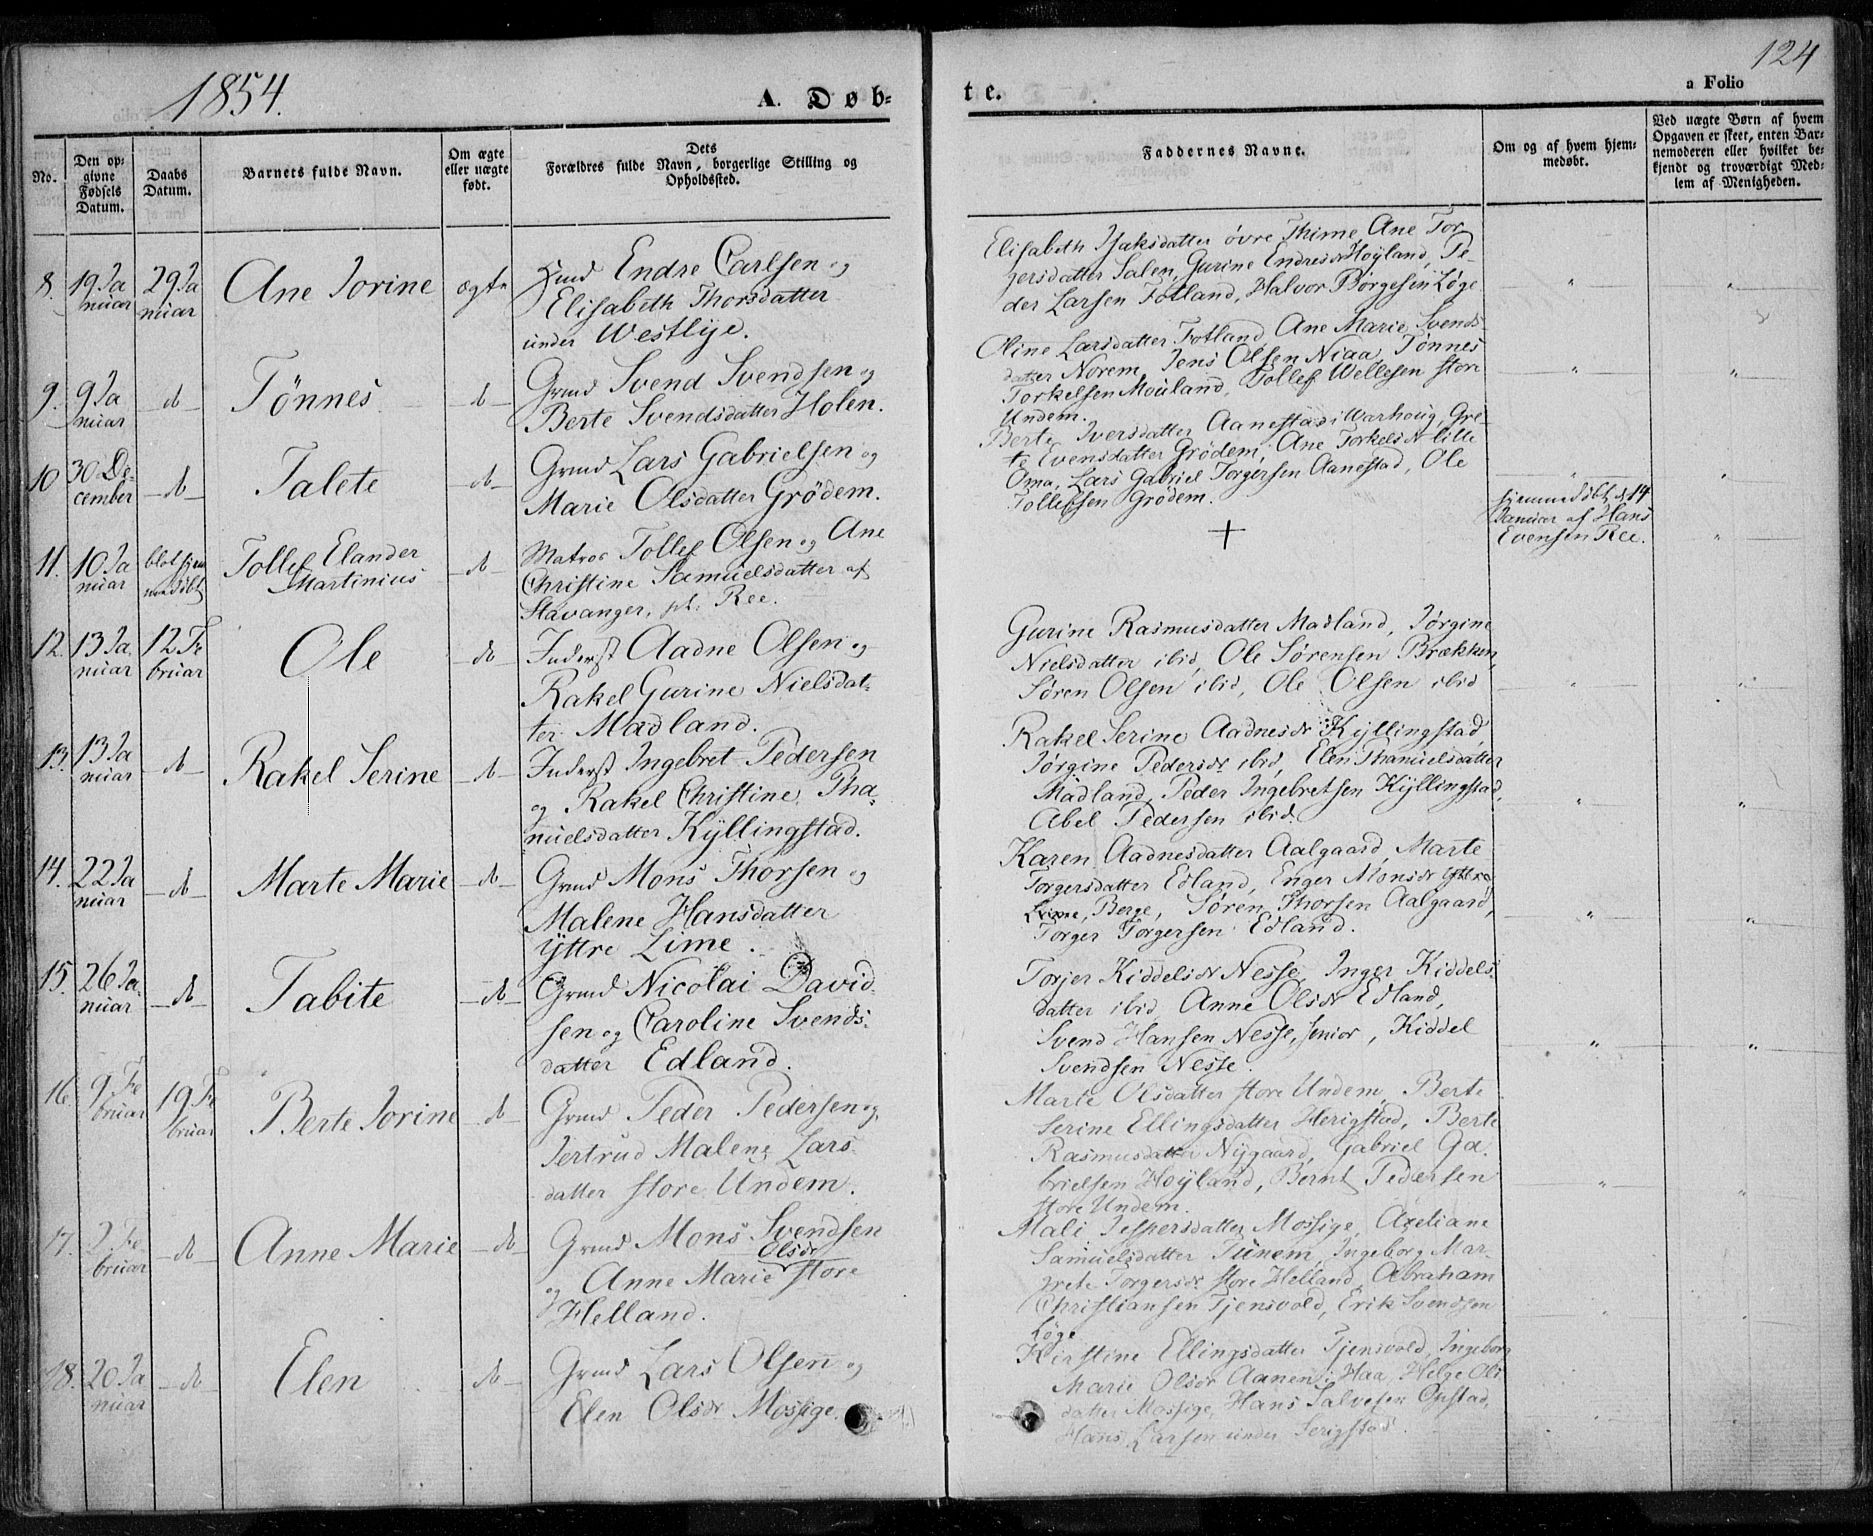 1854.
A. Døb-
te.
124
a Folio
No.
Den op-
givne
Fødsels
Datum.
Daabs
Datum.
Barnets fulde Navn.
Om ægte
eller uægte
født.
Dets
Forældres fulde Navn, borgerlige Stilling og
Opholdssted.
Faddernes Navne.
Om og af hvem hjem-
medøbt.
Ved uægte Børn af hvem
Opgaven er skeet, enten Bar-
nemoderen eller hvilket be-
kjendt og troværdigt Med-
lem af Menigheden.
8. 19 Ja
nuar
29 Ja
nuar
Ane Jorine
ægte
Huusmd Endre Carlsen og
Elisabeth Thorsdatter
under Westlye.
Elisabeth Isaksdatter øvre Thime, Ane Tor
gersdatter Salen, Gurine Endresdr Høyland, Pe-
der Larsen Fotland, Halvor Børgesen Løge
9. 9 Ja
nuar
do
Tönnes
do
Grmd Svend Svendsen og
Berte Svendsdatter Holen.
Oline Larsdatter Fotland, Ane Marie Svends-
datter Norem, Jens Olsen Niaa, Tønnes
Torkelsen Mouland, Tollef Wellesen store
Undem.
10 30 De
cember
do
Talete
do
Grmd Lars Gabrielsen og
Marie Olsdatter Grödem.
Berte Iversdatter Aanestad i Warhoug, Gre-
te Evensdatter Grødem, Ane Torkelsdr lille
Oma, Lars Gabriel Torgersen Aanestad, Ole
Tollefsen Grødem.
11. 10 Ja
nuar
blot hjem
medöbt
Tollef Elander
Martinius
do
Matros Tollef Olsen og Ane
Christine Samuelsdatter af
Stavanger, pt. Ree.
+
hjemmedöbt d 14
Januar af Hans
Evensen Ree.
12. 13 Ja
nuar
12 Fe
bruar
Ole
do
Inderst Aadne Olsen og
Rakel Gurine Nielsdat-
ter Madland.
Gurine Rasmusdatter Madland, Jørgine
Nielsdatter ibid, Ole Sørensen Brækken,
Søren Olsen ibid, Ole Olsen ibid
13. 13 Ja
nuar
do
Rakel Serine
do
Inderst Ingebret Pedersen
og Rakel Christine Tha-
nuelsdatter Kyllingstad.
Rakel Serine Aadnesdr Kyllingstad
Jørgine Pedersdr ibid, Elen Thanuelsdatter
Madland, Peder Ingebretsen Kyllingstad,
Abel Pedersen ibid.
14. 22 Ja
nuar
do
Marte Marie
do
Grmd Mons Thorsen og
Malene Hansdatter
Yttre Lime.
Karen Aadnesdatter Aalgaard, Marte
Torgersdatter Edland, Enger Monsdr yttre
Lime, Berge, Søren Thorsen Aalgaard,
Torger Torgersen Edland.
15. 26 Ja
nuar
do
Tabite
do
Grmd Nicolai David-
sen og Caroline Svends-
datter Edland.
Torjer Kiddelsdr Nesse, Inger Kiddels-
datter ibid, Anne Olsdr Edland,
Svend Hansen Nesse, senior, Kiddel
Svendsen Nesse.
16. 9. Fe
bruar
19 Fe
bruar
Berte Jorine
do
Grmd Peder Pedersen og
Jertrud Malene Lars
datter store Undem.
Marte Olsdatter store Undem, Berte
Serine Ellingsdatter Herigstad, Berte
Rasmusdatter Nygaard, Gabriel Ga-
brielsen Høyland, Bernt Pedersen
store Undem.
17. 2 Fe
bruar
do
Anne Marie
do
Grmd Mons Svendsen
og Anne Marie Olsdr store
Helland.
Mali Jespersdatter Mossige, Axeliane
Samuelsdatter Tunem, Ingeborg Mar-
grete Torgersdr store Helland, Abraham
Christiansen Tjensvold, Erik Svendsen
Løge
18. 20 Ja
nuar
do
Elen
do
Grmd Lars Olsen og
Elen Olsdr Mossige.
Kirstine Ellingsdatter Tjensvold, Ingeborg
Marie Olsdr Aanen i Haa, Helge Ols
datter Mossige, Hans Salvesen Opstad,
Hans Larsen under Serigstad.